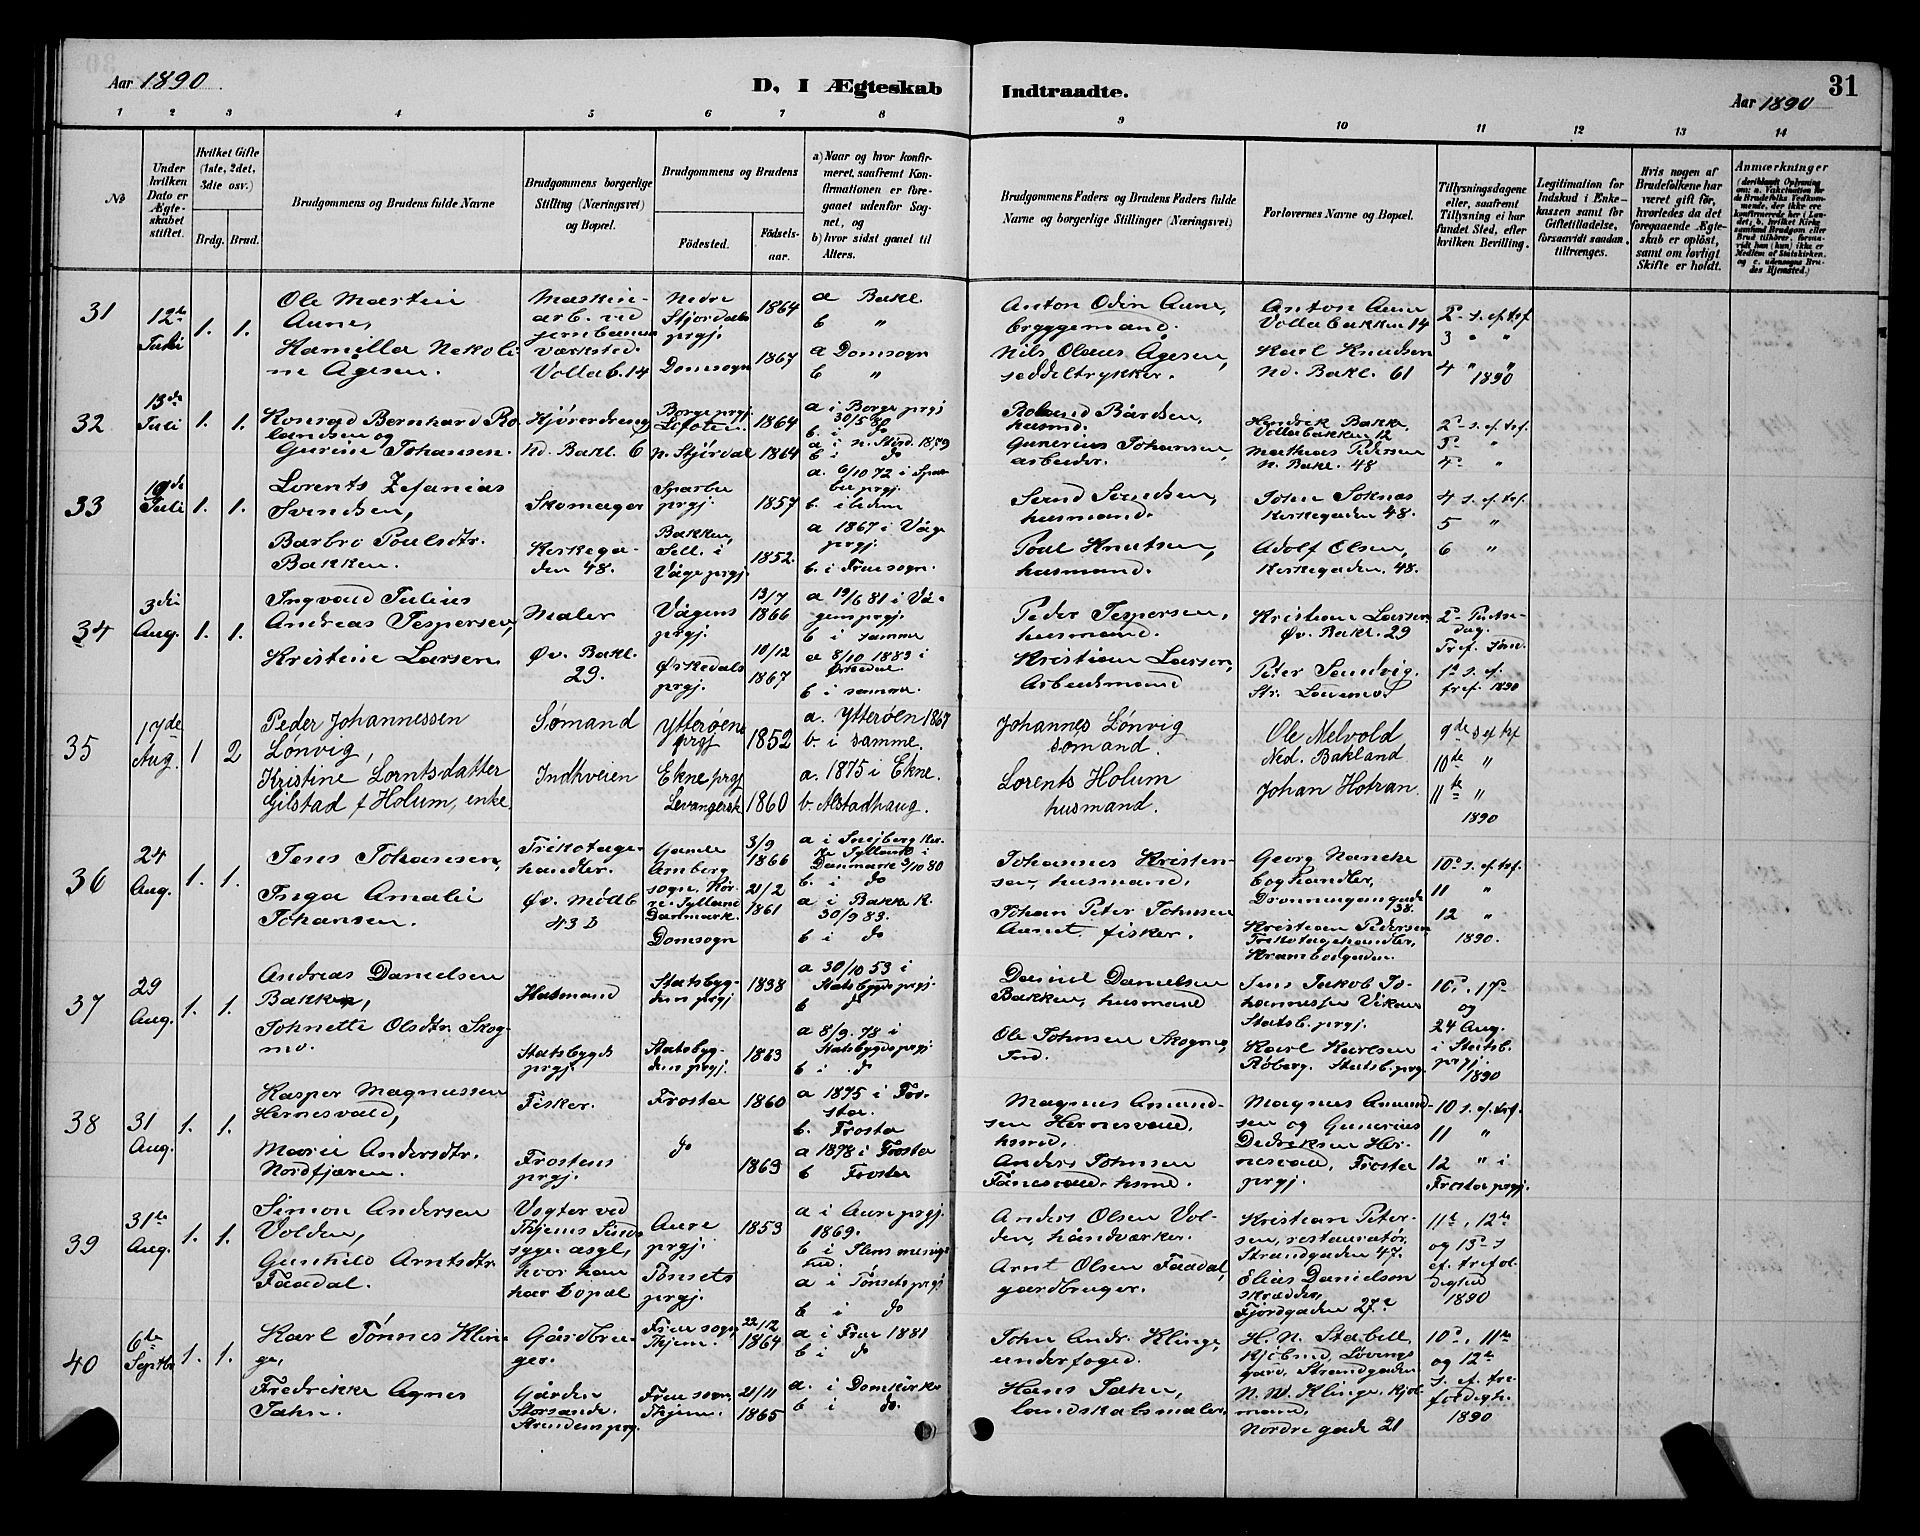 Aar 1890
D, I Ægteskab Indtraadte.
31
Aar 1890
1 2 3 4 5 6 7 8 9 10 11 12 13 14
No
Under hvilken Dato er Ægteskabet stiftet.
Hvilket Gifte (1ste, 2det, 3die osv.)
Brdg. Brud.
Brudgommens og Brudens fulde Navne
Brudgommens borgerlige Stilling (Næringsvei) og Bopæl.
Brudgommens og Brudens
Fødested.
Fødselsaar.
a) Naar og hvor konfirmeret, saafremt Konfirmationen er foregaaet udenfor Sognet, og
b) hvor sidst gaaet til Alters.
Brudgommens Faders og Brudens Faders fulde Navne og borgerlige Stillinger (Næringsvei)
Forlovernes Navne og Bopæl.
Tillysningsdagene eller, saafremt Tillysning ei har fundet Sted, efter hvilken Bevilling.
Legitimation for Indskud i Enkekassen samt for Giftetilladelse, forsaavidt saadan tiltrænges.
Hvis nogen af Brudefolkene har været gift før, hvorledes da det foregaaende Ægteskab er opløst, samt om lovligt Skifte er holdt.
Anmærkninger
31
12te Juli
1. 1.
Ole Martin
Aune,
Kamilla Nekoli
ne Ågesen.
Maskin-
arb. ved
jernbanens
værksted.
Vollab. 14
Nedre
Stjordals
prgj.
Domsogn
1864
1867
a Bakl.
b "
a Domsogn
b "
Anton Odin Aune,
bryggemand.
Nils Olaus Ågesen,
seddeltrykker.
Anton Aune
Vollabakken 14
Karl Knudsen
Nd. Bakl. 61
2 s. ef. tref.
3 " "
4 " "
1890
32
13de Juli
1. 1.
Konrad Bernhard Ro
landsen og
Gurine Johansen.
Kjøreredreng
Nd. Bakl. 6
Borge prgj.
Lofoten.
N. Stjørdal
1864
1864
a i Borge prgj
30/5 80
b. i do
a i N. Stjrd. 1879
b i do
Roland Bårdsen,
husmd.
Gunerius Johansen,
arbeider.
Hendrik Bakke,
Vollabakken 12
Mathias Pedersen
N. Bakl. 48
2 s. ef. tref.
3 "
4 "
33
19de Juli
1. 1.
Lorents Zefanias
Svendsen,
Barbro Poulsdtr.
Bakken.
Skomager
Kirkega-
den 48.
Sparbu
prgj.
Bakken,
Sell. i
Våge prgj.
1857
1852.
a. 6/10 72 i Spar
bu prgj.
b. i Ilden
a 1867 i Våge
prgj.
b. i Fruesogn.
Svend Svendsen,
husmand.
Poul Knutsen,
husmand.
John Soknæs
Kirkegaden 48.
Adolf Olsen,
Kirkegaden. 48.
4 s. ef. tref.
5 "
6 "
34
3die Aug.
1. 1.
Ingvald Julius
Andreas Jespersen,
Kristine Larsen.
Maler
Øv. Bakl.
29.
Vågens
prgj.
Ørkedals
prgj.
13/7
1866
10/12
1867
a 19/6 81 i Vå-
gens prgj.
b i samme
a 8/10 1883 i
Ørkedal
b i samme.
Peder Jespersen,
husmand.
Kristian Larsen,
Arbeidsmand
Kristian Larsen
Øv. Bakl. 29
Peter Sandvig.
Str. Lavemo.
2 Pintse-
dag.
Tref. Sønd.
1s s. ef.
tref. 1890
35
17de Aug.
1 2
Peder Johannessen
Lønvig,
Kristine Lorntsdatter
Gilstad f Holum, enke
Sømand
Indhveien
Ytterøens
prgj
Ekne prgj
Levanger sk
1852
1860
a. Ytterøen 1867
b. i samme.
a. 1875 i Ekne.
b. Alstadhaug.
Johannes Lønvig
sømand.
Lorents Holum
husmand.
Ole Melvold
Ned. Bakland
Johan Hotran
9de s ef tref
10de "
11te "
1890
36
24 Aug.
1. 1.
Jens Johansen,
Inga Amalie
Johansen.
Trikotage-
handler.
Øv. Mødb
43 D
Gamle
Arnborg
sogn, Kør-
re. Jylland
Danmark.
Domsogn
3/9
1866
21/2
1861
a i Snejbjerg Kir-
ke Jylland i
Danmark 3/10 80
b. i do
a i Bakke K.
30/9 83.
b i do
Johannes Kristen-
sen, husmand.
Johan Peter Johnsen
Aunet. fisker.
Georg Nancke
boghandler,
Dronningensgade
38.
Kristian Pedersen
Trikotagehandler,
Krambodgaden.
10 s. ef. tref.
11 "
12 "
1890.
37
29 Aug.
1. 1.
Andreas Danielsen
Bakken,
Johnette Olsdtr. Skog-
mo.
Husmand
Statsbygds
prgj.
Statsbyg-
dens prgj
Statsbyg-
dens prgj.
1838
1863
a 30/10 53 i
Statsbygds prgj.
b do
a 8/9. 78 i
Statsbygds prgj
b i. do
Daniel Danielsen
Bakken, husmand
Ole Johnsen Skogmo,
Ind.
Jens Jakob Jo-
hannesen Viken
Statsb. prgj.
Karl Karlsen
Røberg. Statsb. prg
10, 17
og
24 Aug.
i Statsb.
prgj.
1890
38
31 Aug.
1. 1.
Kasper Magnussen
Hernesvald,
Marie Andersdtr.
Nordfjæren.
Fisker.
Frostens
prgj.
Frosta
do
1860
1869
a 1875 i Fro-
sta.
b. Frosta
a 1878 i Frosta
b Frosta
Magnus Amund-
sen Hernesvald,
hsmd.
Anders Johnsen
Fånesvald. hsmd.
Magnus Amund-
sen og Gunerius
Dedreksen Her-
nesvald, Frosta
prgj.
10 s. ef. tref.
11 "
12 " i
Frosta prgj.
39
31te Aug.
1. 1.
Simon Andersen
Volden,
Gunhild Arntsdtr
Faadal.
Vogter ved
Thjems Sinds
syge asyl,
hvor han
har bopæl
Aure
prgj.
Tønsets
prgj.
1853
a i Aure prgj.
1869.
b i Ilens menig-
hed.
a i Tønsets prgj
b i do
Anders Olsen Vol-
den, håndværker.
Arnt Olsen Faadal,
gardbruger.
Kristian Peter-
sen, restauratør,
Strandgaden 47.
Elias Danielson
skrædder,
Fjordgaden 27.
11te, 12te
og 13 s
ef. trefol-
dighed
1890
40
6te Septbr
1. 1.
Karl Tønnes Klin-
ge,
Fredrikke Agnes
Jahn.
Gårdbru-
ger.
Gården
Storsande.
Strindens prg.
Frue sogn
Thjem.
Frue sogn
Thjem.
22/12
1864
21/11
1865
a i Frue 1881
b i do
a. i Domkirke
b i do.
John Andr. Klinge,
underfoged.
Hans Jahn,
landskabsmaler,
H. N. Stabell
Kjøbmd, Løvens
gård, Strandgaden
N. W. Klinge, kjøb
mand,
Nordregade 21
10, 11te
og 12te
s. ef. tre-
foldigh.
1890